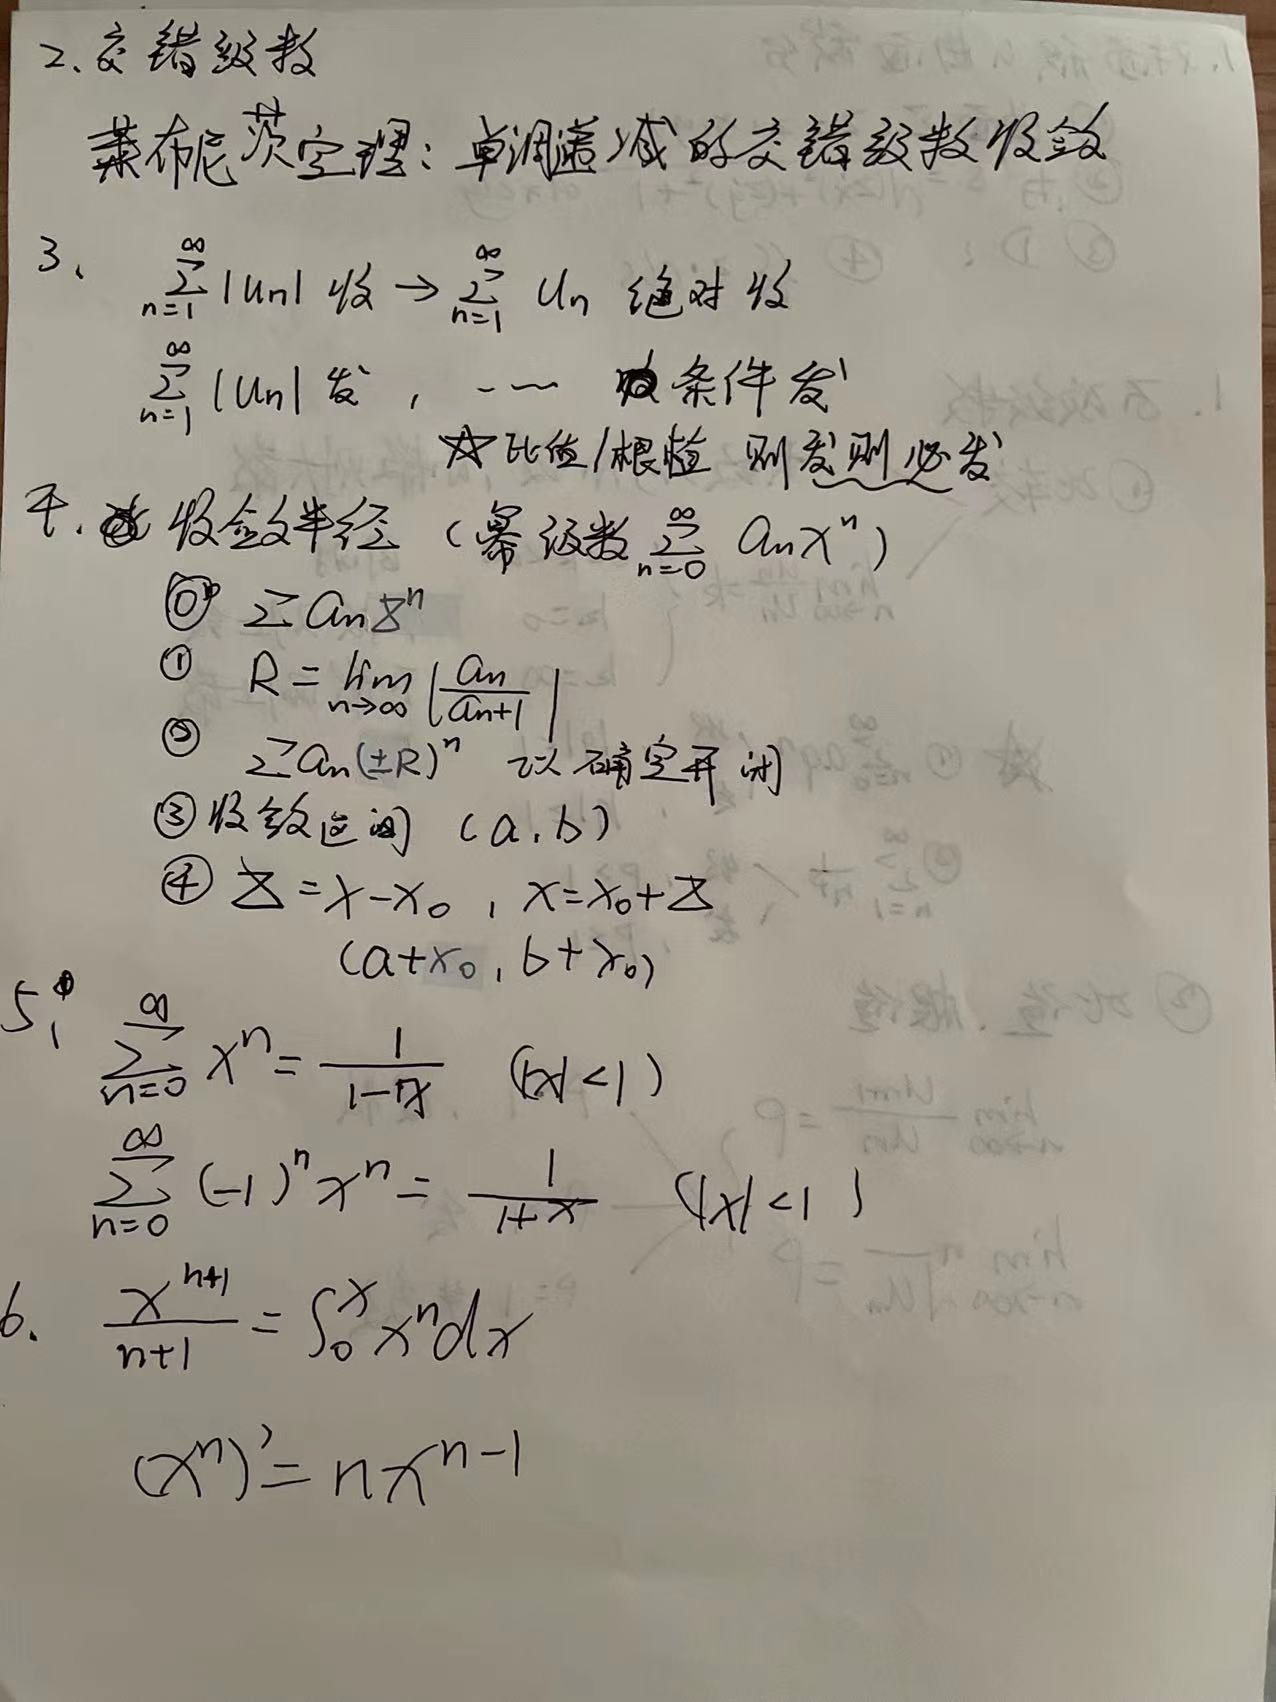 2. 交错级数
莱布尼茨定理: 单调递减的交错级数收敛
3、 ∑_{n=1}^{∞} |Un| 收 → ∑_{n=1}^{∞} Un 绝对收
∑_{n=1}^{∞} |Un| 发, ---- 条件发
☆比值/根植 则发则必发
4. 收敛半经 (幂级数 ∑_{n=0}^{∞} an x^n)
⓪ ∑ an z^n
① R = lim_{n→∞} |an/an+1|
② ∑an(±R)^n 以确定开闭
③ 收敛区间 (a, b)
④ z = x-x0, x=x0+z
(a+x0, b+x0)
5. ∑_{n=0}^{∞} x^n = 1/(1-x) (|x|<1)
∑_{n=0}^{∞} (-1)^n x^n = 1/(1+x) (|x|<1)
6. x^{n+1}/(n+1) = ∫_0^x x^n dx
(x^n)' = nx^{n-1}